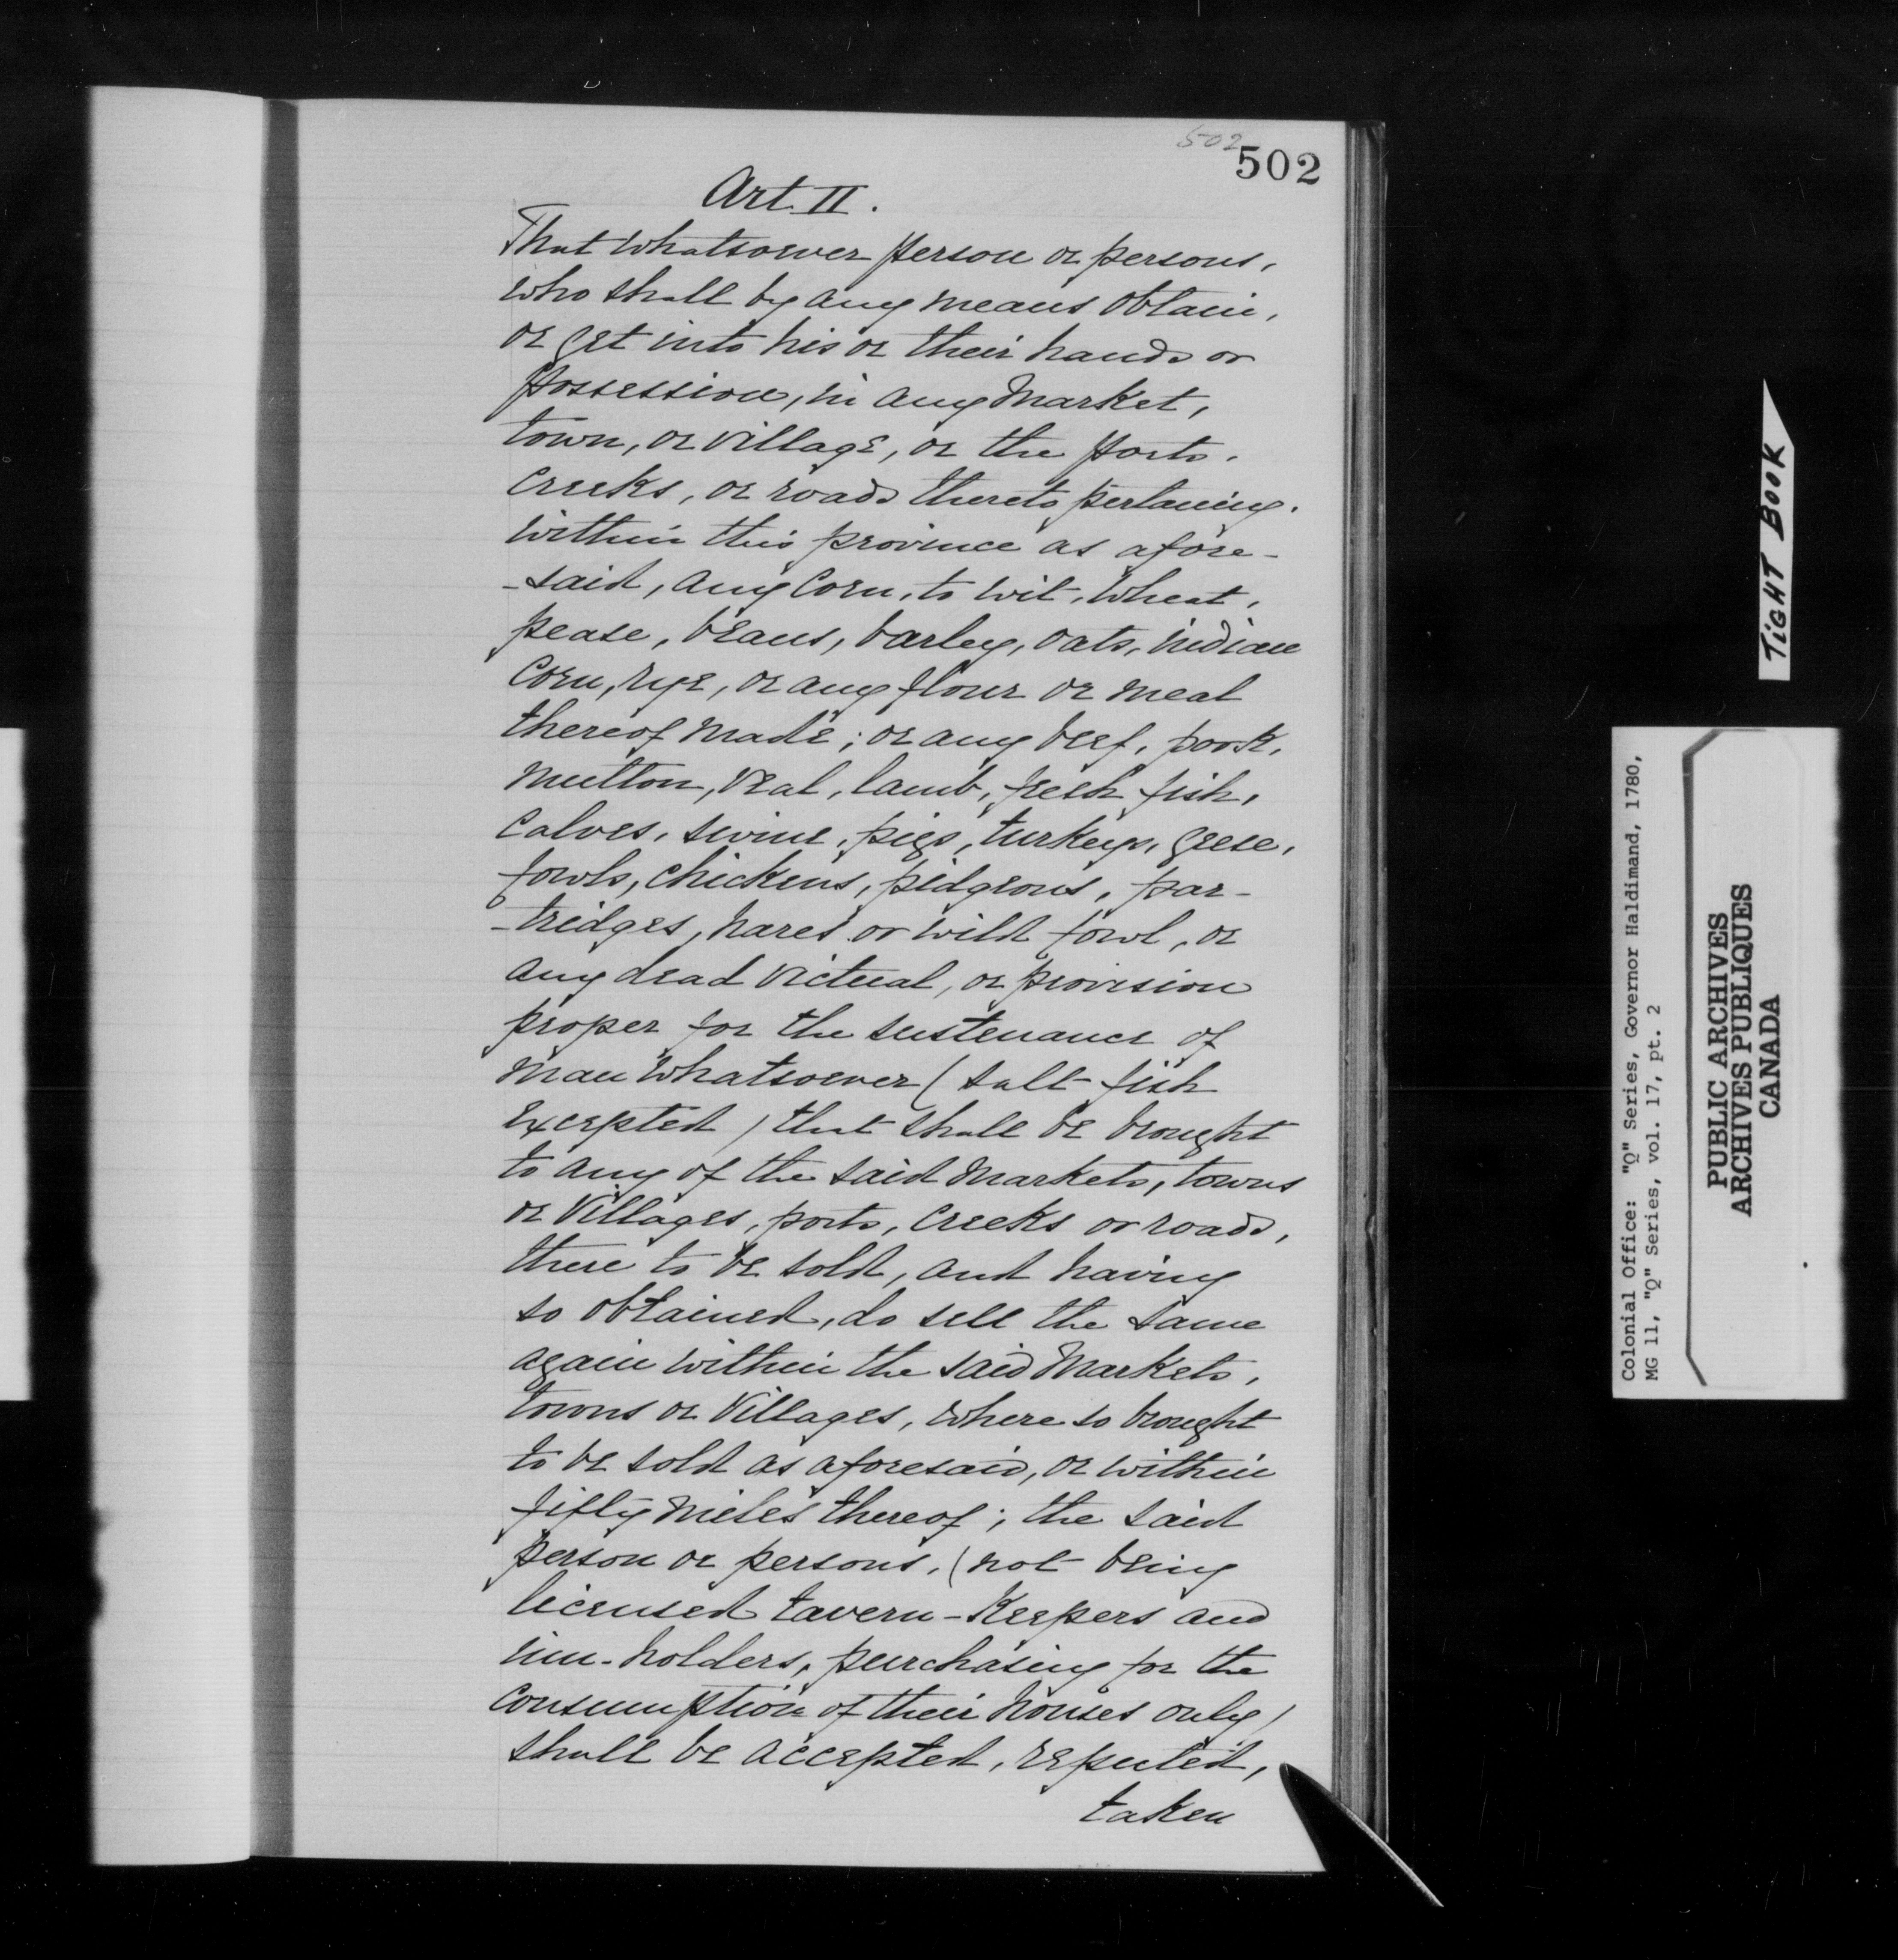 502
502
Art. II.
That whatsoever person or persons,
who shall by any means obtain,
or get into his or their hands or
possession, in any market,
town, or village, or the ports,
creeks, or roads thereto pertaining,
within this province as afore-
-said, any corn, to wit, wheat,
pease, beans, barley, oats, indian
corn, rye, or any flour or meal
thereof made; or any beef, pork,
mutton, veal, lamb, fresh fish,
calves, swine, pigs, turkeys, geese,
fowls, chickens, pidgeons, par-
-tridges, hares or wild fowl, or
any dead victual, or provision
proper for the sustenance of
man whatsoever (salt fish
excepted) that shall be brought
to any of the said markets, towns
or villages, ports, creeks or roads,
there to be sold, and having
so obtained, do sell the same
again within the said markets,
towns or villages, where so brought
to be sold as aforesaid, or within
fifty miles thereof; the said
person or persons, (not being
licensed tavern-keepers and
inn-holders, purchasing for the
consumption of their houses only)
shall be accepted, reputed,
taken
TIGHT BOOK
Colonial Office: "Q" Series, Governor Haldimand, 1780,
MG 11, "Q" Series, vol. 17, pt. 2
PUBLIC ARCHIVES
ARCHIVES PUBLIQUES
CANADA